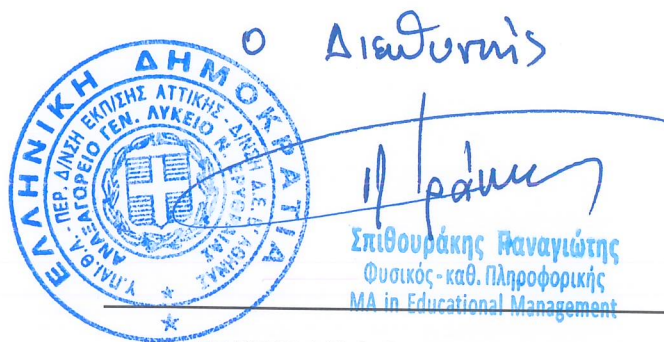 Ο Διευθυντής
ΕΛΛΗΝΙΚΗ ΔΗΜΟΚΡΑΤΙΑ
Υ.ΠΑΙ.Θ.Α. - ΠΕΡ. Δ/ΝΣΗ ΕΚΠ/ΣΗΣ ΑΤΤΙΚΗΣ - Δ/ΝΣΗ Δ.Ε. ΑΘΗΝΑΣ
ΑΝΑΞΑΓΟΡΕΙΟ ΓΕΝ. ΛΥΚΕΙΟ Ν. ΕΡΥΘΡΑΙΑΣ
Σπιθουράκης Παναγιώτης
Φυσικός - καθ. Πληροφορικής
MA in Educational Management